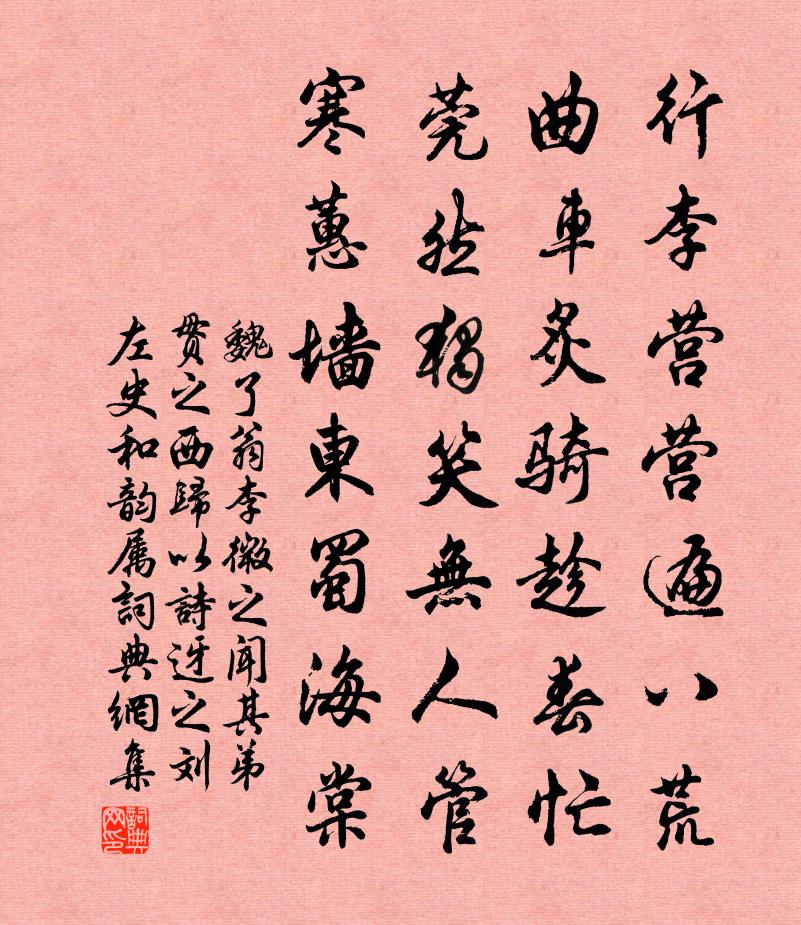 行李营营遍八荒
曲車炙骑趁春忙
莞然独笑無人管
寒蕙墙東蜀海棠
魏了翁李微之闻其弟
贯之西歸以詩迓之刘
左史和韵属詞典網集
詞典网印